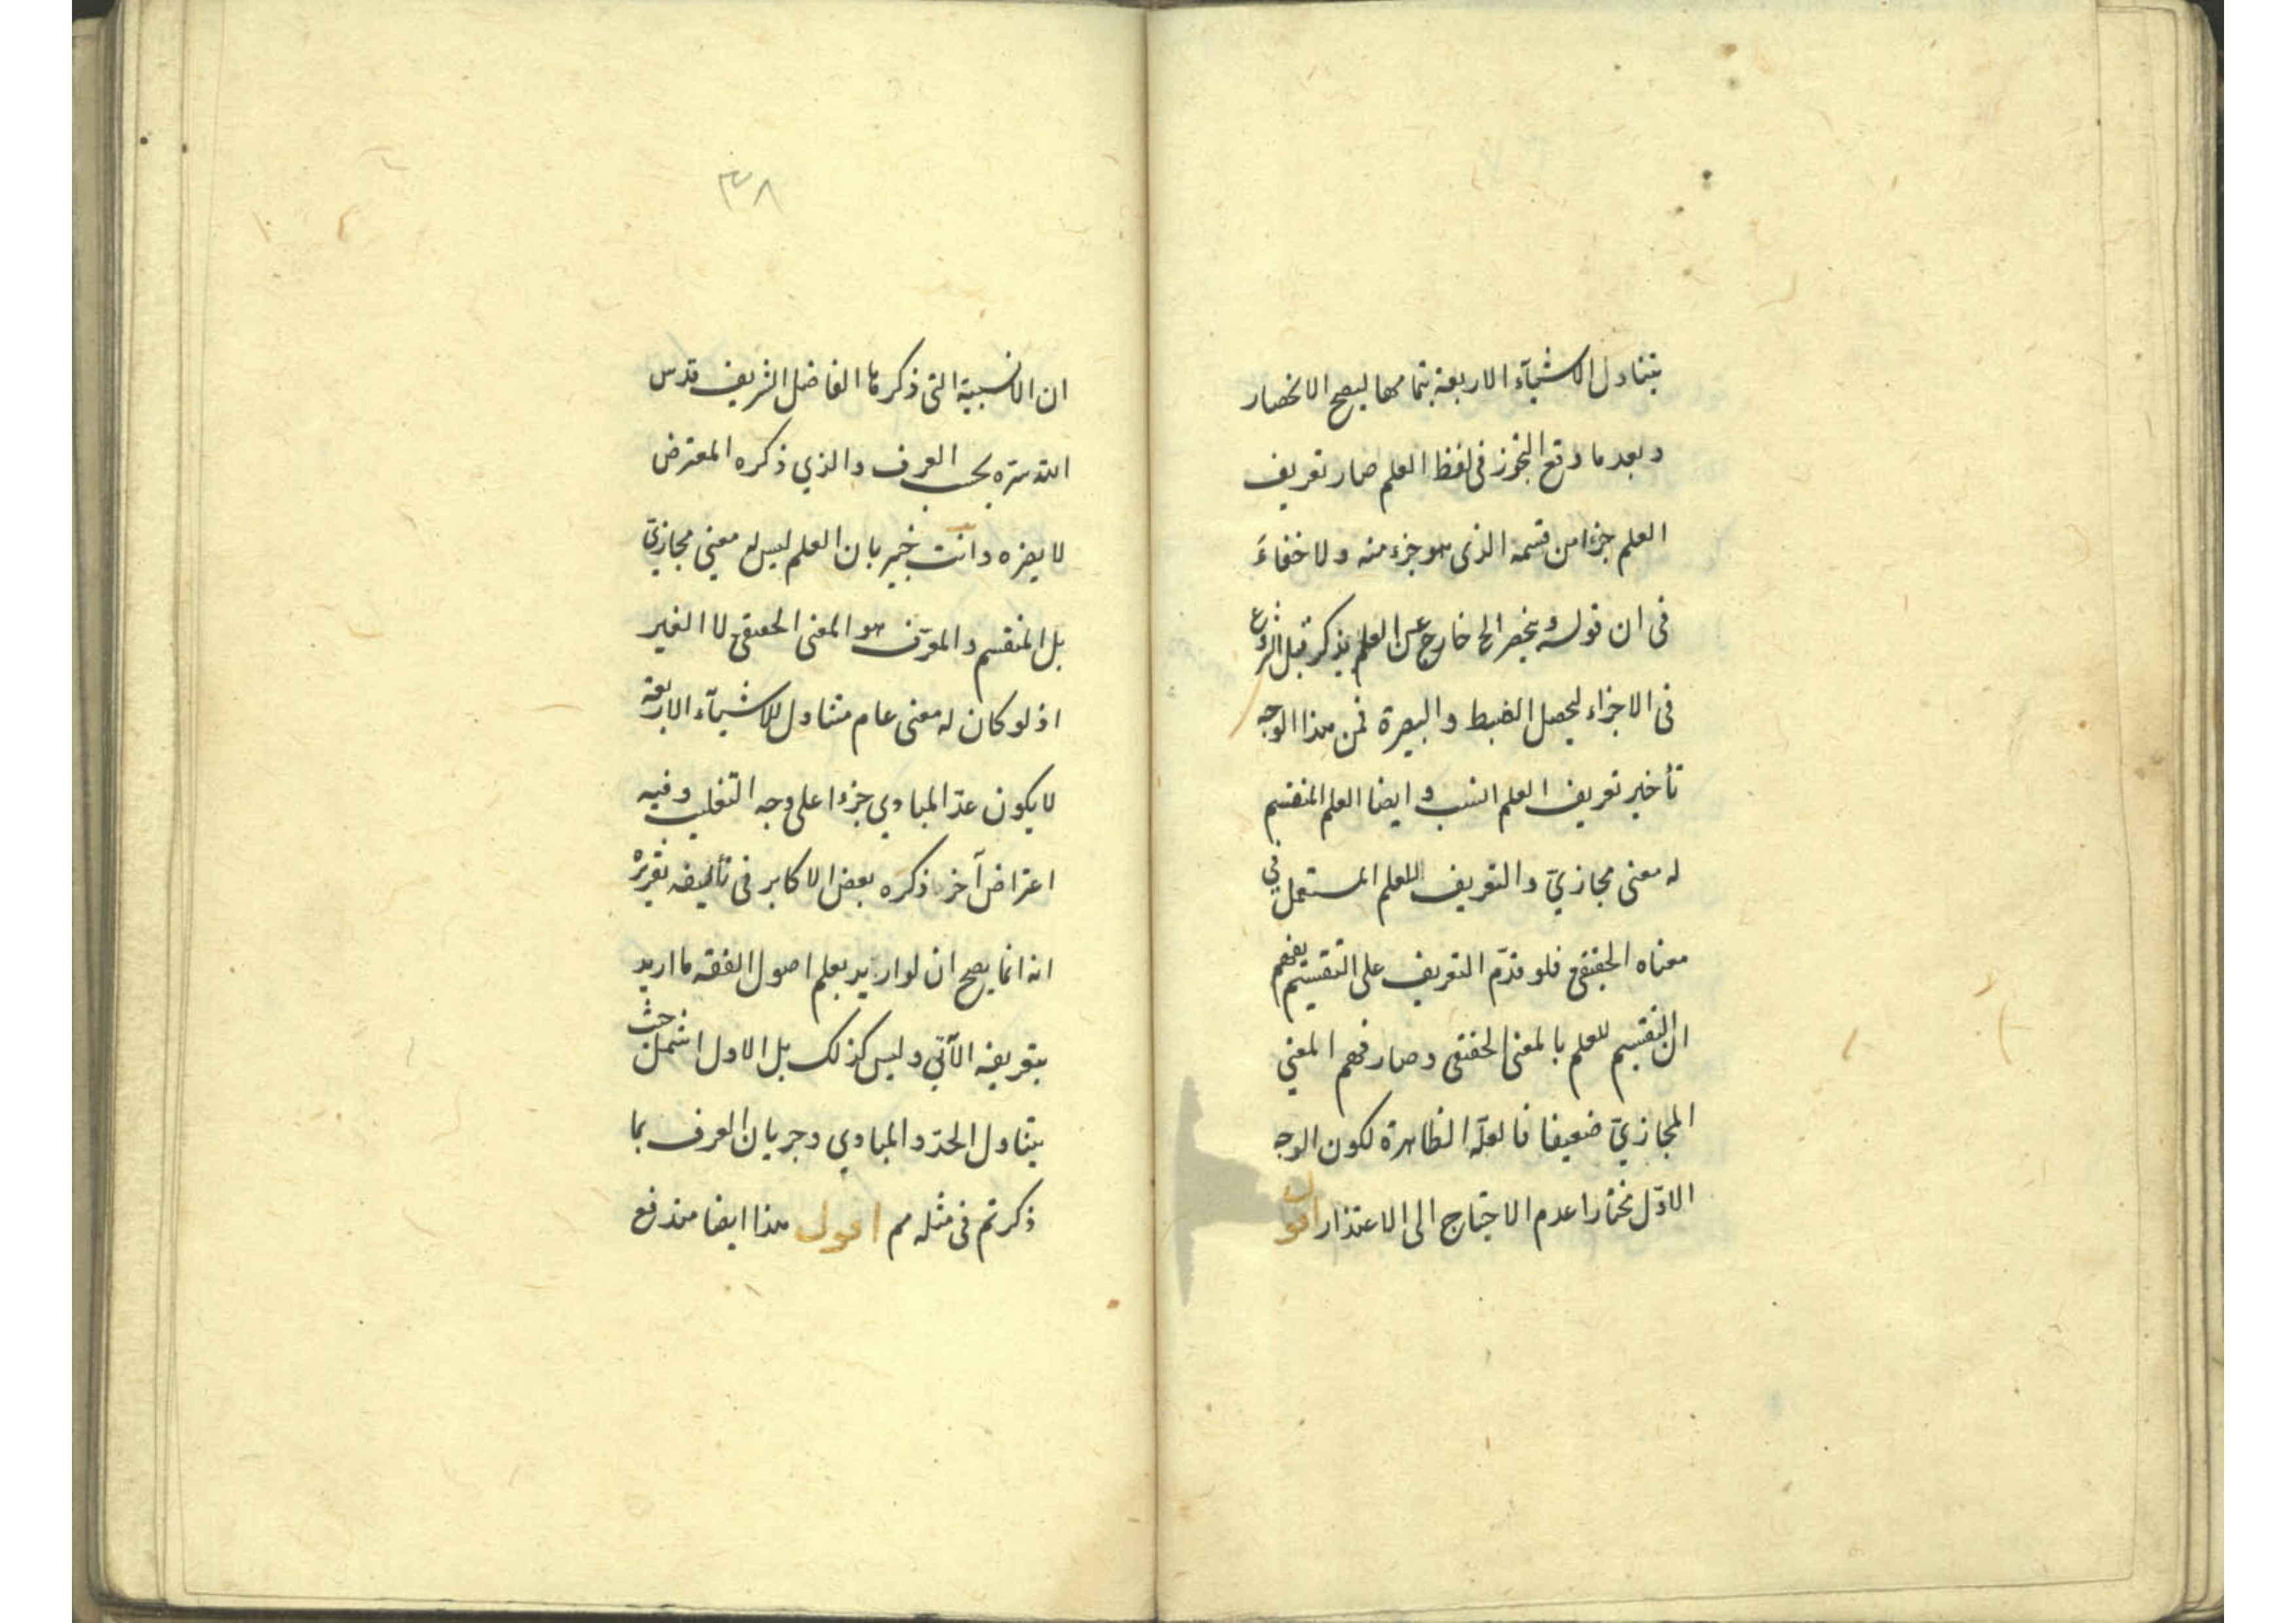 يتناول الاشيآء الاربعة بتمامها ليصح الانحصار
وبعد ما وقع التجوز فى لفظ العلم صار تعريف
العلم جزءا من قسمه الذى هو جزء منه ولا خفاءَ
فى ان قوله وينحصر الخ خارج عن العلم يذكر قبل الشروع
فى الاجزاء ليحصل الضبط والبصيرة فمن هذا الوجه
تأخير تعريف العلم انسب وايضا العلم المنقسم
له معنى مجازيّ والتعريف للعلم المستعمل في
معناه الحقيقى فلو قدّم التعريف على التقسيم يفهم
ان التقسيم للعلم بالمعنى الحقيقى وصار فهم المعني
المجازيّ ضعيفا فالعلّة الظاهرة لكون الوجه
الاوّل مختارا عدم الاحتياج الى الاعتذار اقول
٣٨
ان الانسبية التى ذكرها الفاضل الشريف قدس
الله سرّه بحسب العرف والذي ذكره المعترض
لا يضره وانت خبير بان العلم ليس له معنى مجازيّ
بل المنقسم والمعرّف هو المعنى الحقيقى لا الغير
اذ لو كان له معنى عام متناول للاشيآء الاربعة
لا يكون عدّ المبادي جزءا على وجه التغليب وفيه
اعتراض آخر ذكره بعض الاكابر فى تأليفه تقريره
انه انما يصح ان لو اريد بعلم اصول الفقه ما اريد
بتعريفه الآتي وليس كذلك بل الاول اشمل حيث
يتناول الحدّ والمبادي وجريان العرف بما
ذكرتم فى مثله مم اقول هذا ايضا مندفع